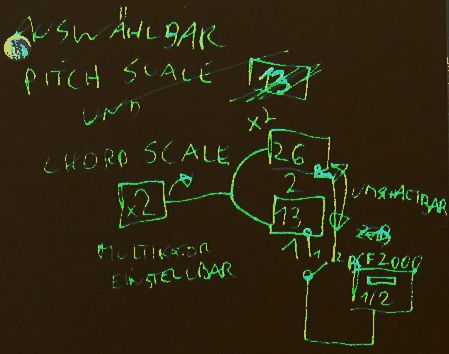 AUSWÄHLBAR
PITCH SCALE
UND
CHORD SCALE
13
x²
26
2
13
1
1
2
x2
MULTIKATOR
EINSTELLBAR
UMSCHALTBAR
1/2